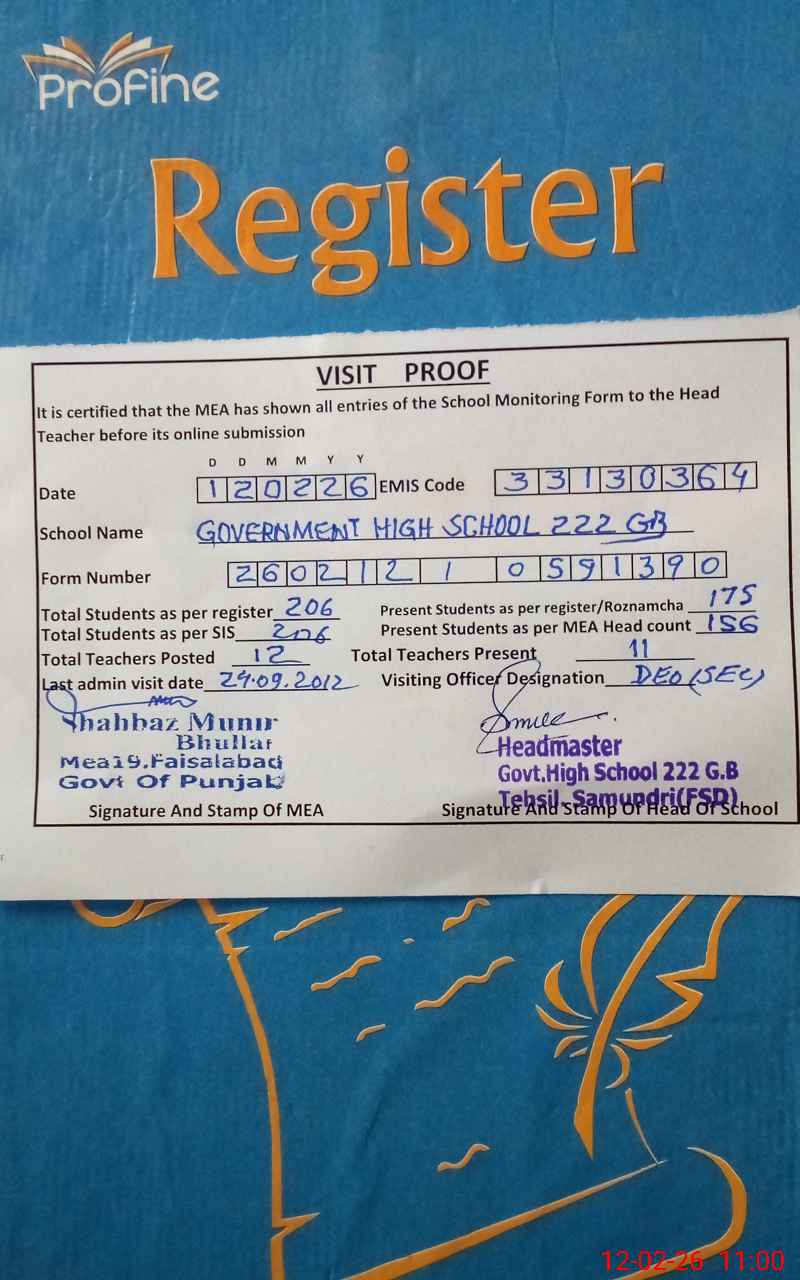 Profine
Register
VISIT PROOF
It is certified that the MEA has shown all entries of the School Monitoring Form to the Head
Teacher before its online submission
D D M M Y Y
Date 120226 EMIS Code 33130364
School Name GOVERNMENT HIGH SCHOOL 222 GB
Form Number 260212 1 0591390
Total Students as per register 206 Present Students as per register/Roznamcha 175
Total Students as per SIS 206 Present Students as per MEA Head count 156
Total Teachers Posted 12 Total Teachers Present 11
Last admin visit date 24.09.2012 Visiting Officer Designation DEO (SEC)
Shahbaz Munir
Bhullar
Mea19.Faisalabad
Govt Of Punjab
Signature And Stamp Of MEA
Headmaster
Govt.High School 222 G.B
Tehsil. Samundri(FSD)
Signature And Stamp Of Head Of School
12-02-26 11:00